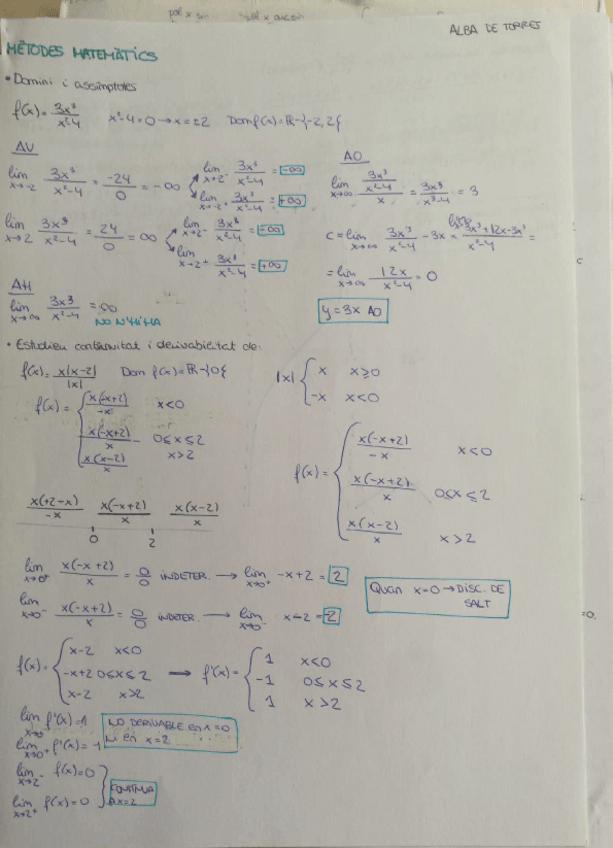 ALBA DE TORRES
MÈTODES MATEMÀTICS
• Domini i assímptotes
f(x) = 3x³/(x²-4)   x²-4=0 → x=±2   Dom f(x)=ℝ-{-2,2}
AV
lim x→-2 3x³/(x²-4) = -24/0 = -∞
lim x→-2⁻ 3x³/(x²-4) = -∞
lim x→-2⁺ 3x³/(x²-4) = +∞
lim x→2 3x³/(x²-4) = 24/0 = ∞
lim x→2⁻ 3x³/(x²-4) = -∞
lim x→2⁺ 3x³/(x²-4) = +∞
AH
lim x→∞ 3x³/(x²-4) = ∞
NO N'HI HA
AO
lim x→∞ (3x³/(x²-4))/x = 3x³/(x³-4) = 3
c = lim x→∞ 3x³/(x²-4) - 3x = (3x³+12x-3x³)/(x²-4) =
= lim x→∞ 12x/(x²-4) = 0
y = 3x AO
• Estudieu continuitat i derivabilitat de:
f(x) = x|x-2|/|x|   Dom f(x)=ℝ-{0}
|x| { x   x≥0
-x   x<0
f(x) = { x(-x+2)/-x   x<0
x(-x+2)/x   0≤x≤2
x(x-2)/x   x>2
f(x) = { x(-x+2)/-x   x<0
x(-x+2)/x   0≤x≤2
x(x-2)/x   x>2
x(+2-x)/-x   x(-x+2)/x   x(x-2)/x
0   2
lim x→0⁺ x(-x+2)/x = 0/0 INDETER. → lim x→0⁺ -x+2 = 2
lim x→0⁻ x(-x+2)/x = 0/0 INDETER. → lim x→0⁻ x-2 = -2
QUAN x=0 → DISC. DE
SALT
f(x) = { x-2   x<0
-x+2   0≤x≤2
x-2   x>2
→ f'(x) = { 1   x<0
-1   0≤x≤2
1   x>2
lim x→0⁻ f'(x) = 1
lim x→0⁺ f'(x) = -1
NO DERIVABLE en x=0
ni en x=2
lim x→2⁻ f(x) = 0
lim x→2⁺ f(x) = 0
CONTÍNUA
A x=2